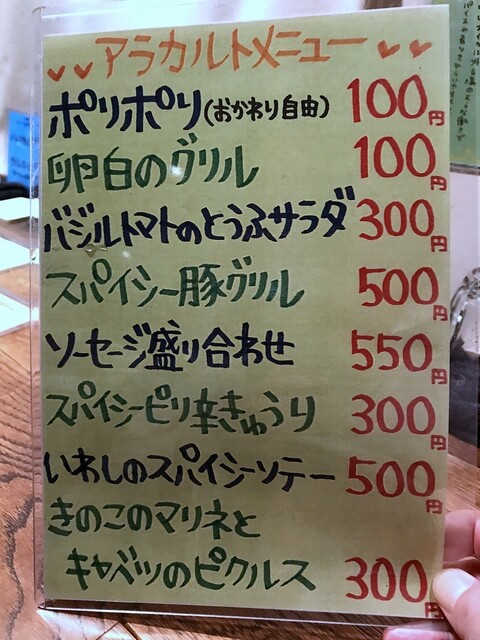 アラカルトメニュー
ポリポリ(おかわり自由) 100円
卵白のグリル 100円
バジルトマトのとうふサラダ 300円
スパイシー豚グリル 500円
ソーセージ盛り合わせ 550円
スパイシーピリ辛きゅうり 300円
いわしのスパイシーソテー 500円
きのこのマリネと
キャベツのピクルス 300円